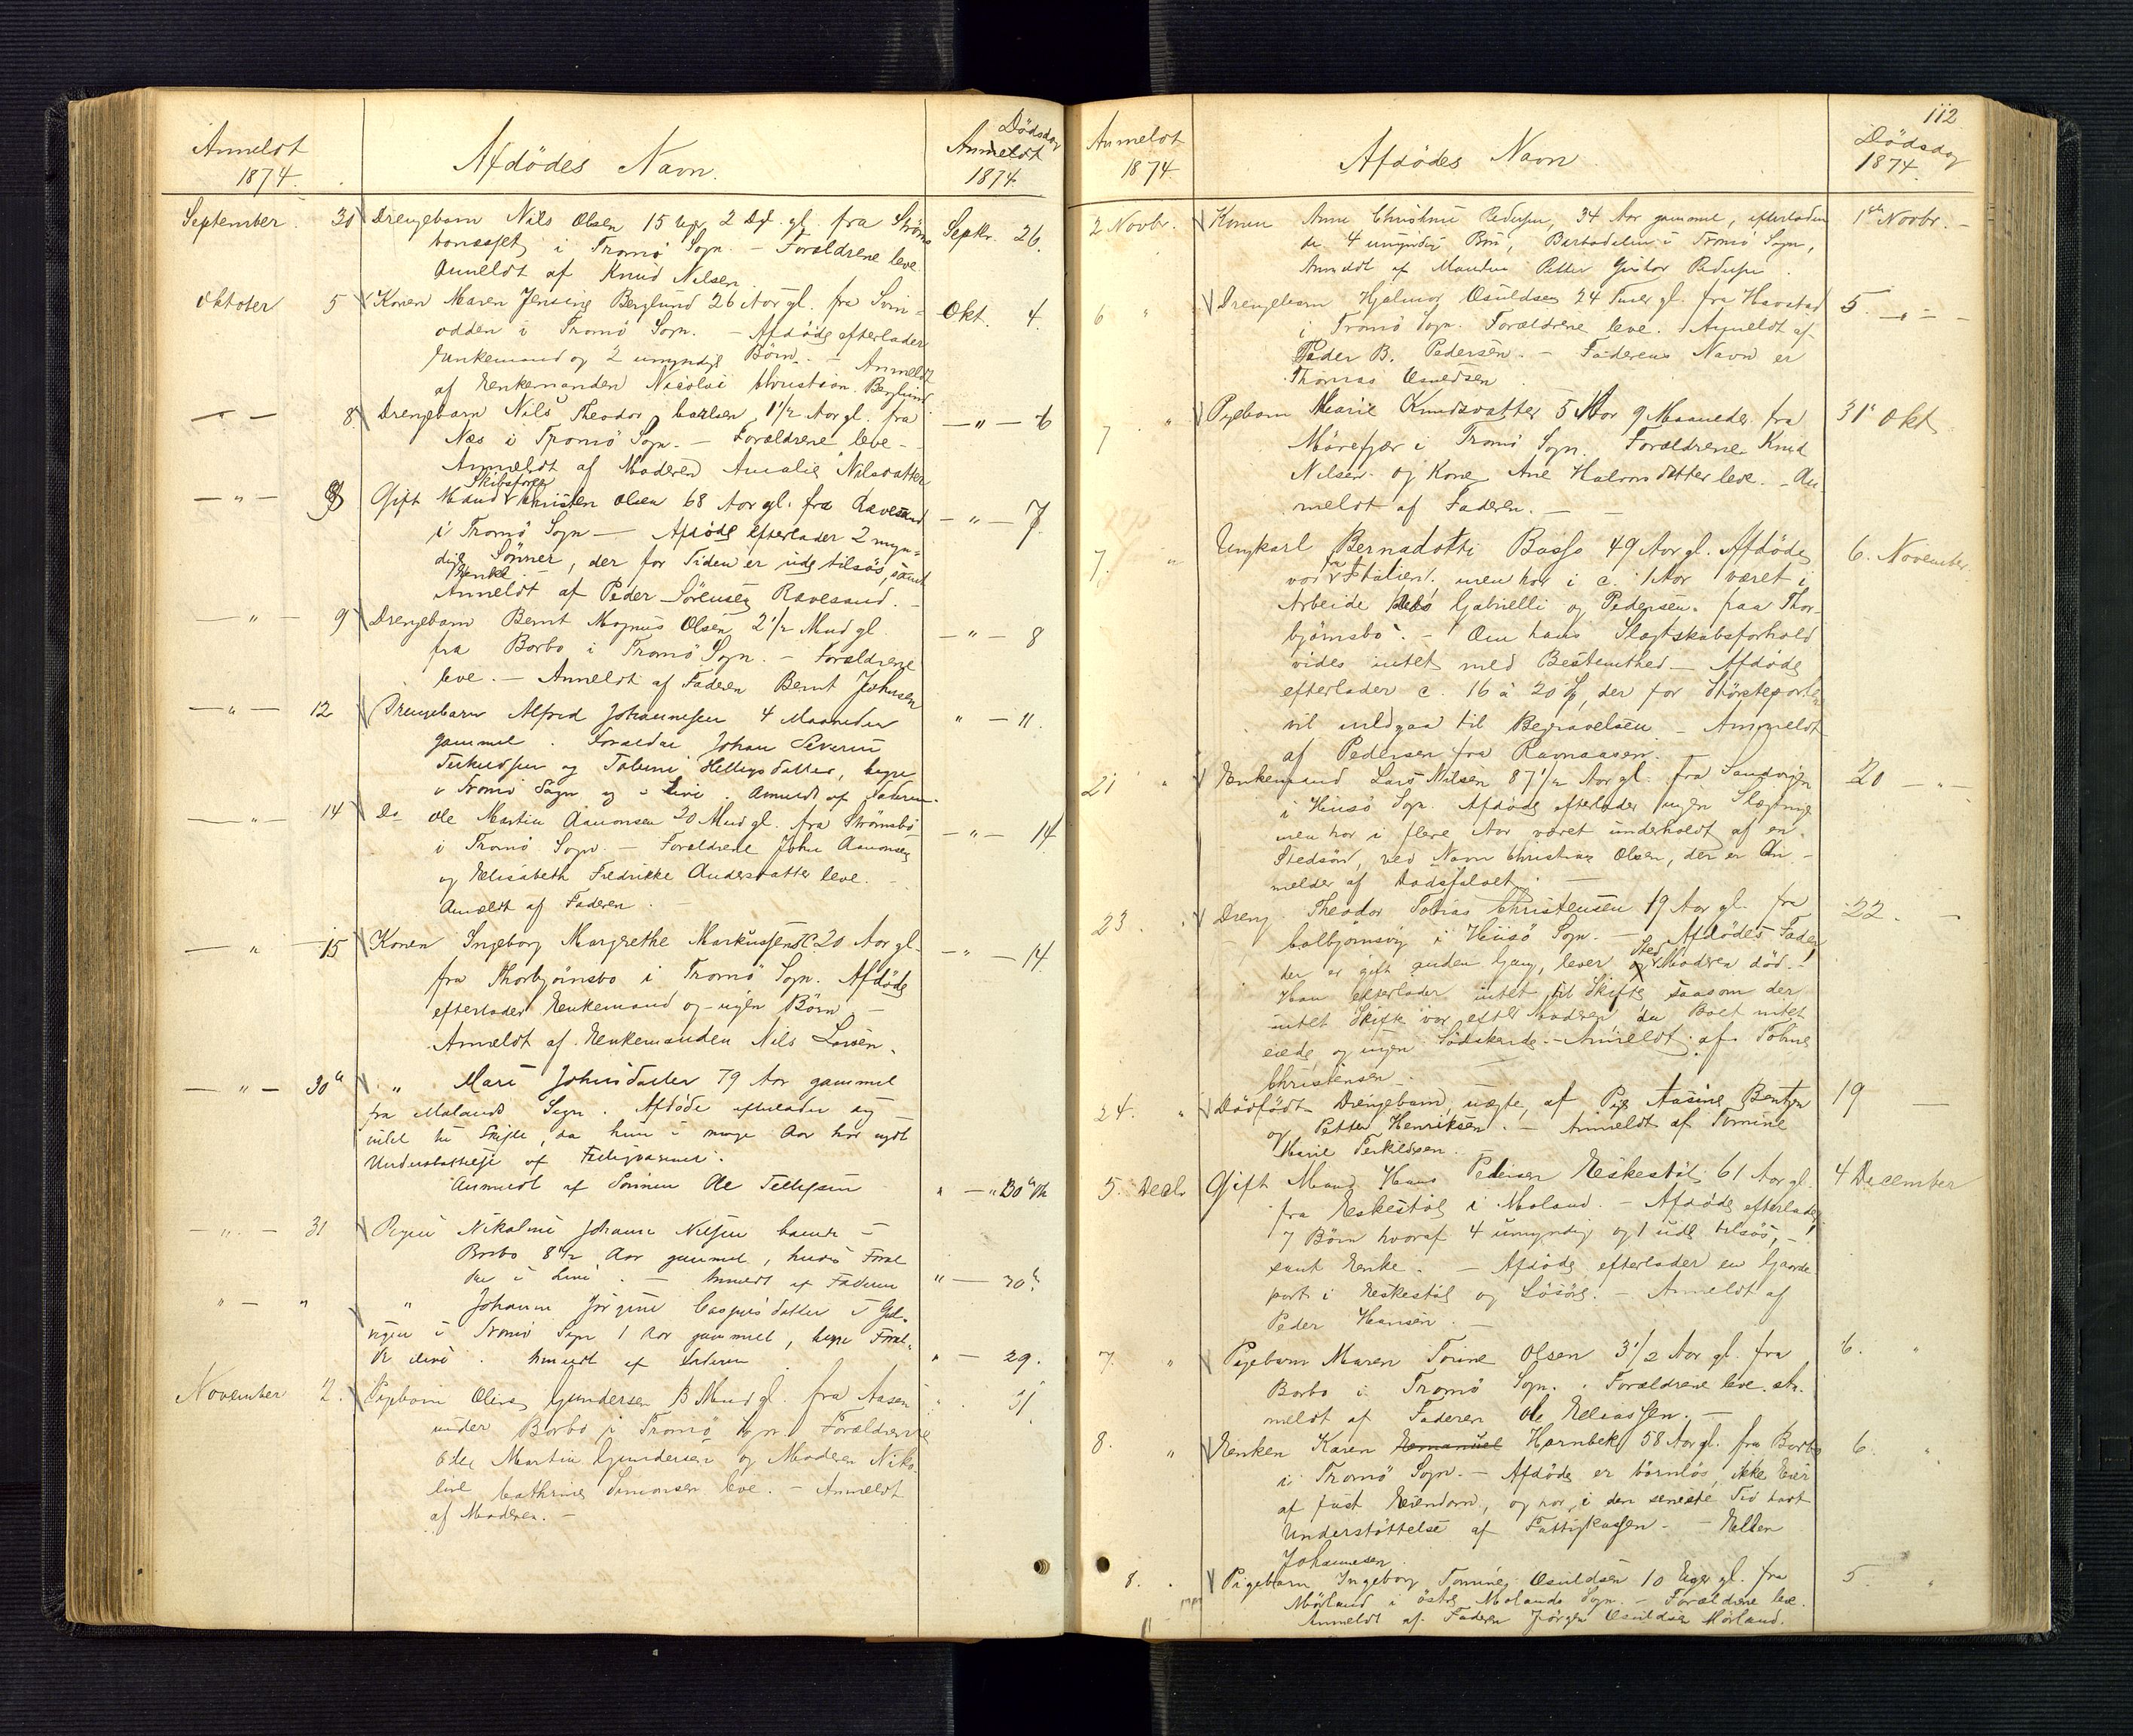 Anmeldt
1874.
Afdödes Navn.
Dödsdag
Anmeldt
1874.
September 30 Drengebarn Nils Olsen 15 Uger 2 Dg. gl. fra Ströms
bonæsset i Tromö Sogn. – Forældrene leve.
Anmeldt af Knud Nilsen. Septr. 26.
Oktober 5 Konen Maren Jensine Berglund 26 Aar gl. fra Svin-
odden i Tromö Sogn. – Afdöde efterlader
Enkemand og 2 umyndige Börn. – Anmeldt
af Enkemanden Nicolai Christian Berglund Okt. 4.
– – 8 Drengebarn Nils Theodor Carlsen, 1 1/2 Aar gl. fra
Næs i Tromö Sogn. – Forældrene leve –
Anmeldt af Moderen Amalie Nilsdatter – " – 6
– " – 8 Gift Mand Skibsförer Christen Olsen 68 Aar gl. fra Ravesand
i Tromö Sogn – Afdöde efterlader 2 myn-
dige Sönner, der for Tiden er ude tilsös, samt
Enke. –
Anmeldt af Peder Sörensen Ravesand. – – " – 7
– " – 9 Drengebarn Bernt Magnus Olsen 2 1/2 Mnd gl.
fra Borbo i Tromö Sogn. – Forældrene
leve. – Anmeldt af Faderen Bernt Johnsen – " – 8
– " – 12 Drengebarn Alfred Johannesen 4 Maaneder
gammel. Forældre Johan Severin
Terkeldsen og Taline Helligsdatter, begge
i Tromö Sogn og i Live. Anmeldt af Faderen. " – 11.
– " – 14 Do Ole Martin Aanonsen 20 Mnd gl. fra Strömsbo
i Tromö Sogn. – Forældrene John Aanonsen
og Elisabeth Fredrikke Andersdatter leve. –
Anmeldt af Faderen. – – " – 14
– " – 15 Konen Ingeborg Margrethe Markussen 20 Aar gl.
fra Thorbjörnsbo i Tromö Sogn. Afdöde
efterlader Enkemand og ingen Börn –
Anmeldt af Enkemanden Nils Larsen. – " – 14.
– " – 30te " Mari Johnsdatter 79 Aar gammel
fra Molands Sogn. Afdöde efterlader sig
intet til Skifte, da hun i mange Aar har nydt
Understöttelse af Fattigvæsenet.
Anmeldt af Sönnen Ole Tellefsen " – " 30te Ok
– " – 31 Pigen Nikoline Johanne Nilsen
Borbo 8 1/2 Aar gammel, hendes Foræl
dre i Live. – Anmeldt af Faderen " – 30te
" – " " Johanne Jörgine Caspersdatter i
i Tromö Sogn 1 Aar gammel, begge Foræl-
dre i live. Anmeldt af Faderen " – 29.
November 2. Pigebarn Oline Gundersen 3 Mnd gl. fra Aasen
under Borbo i Tromö Sogn. Forældrene
Martin Gundersen og Moderen Niko-
line Cathrine Simonsen leve. – Anmeldt
af Moderen. – " 31.
112
Anmeldt
1874
Afdödes Navn
Dödsdag
1874.
2 Novbr. Konen Anne Christine Pedersen, 34 Aar gammel, efterladen
de 4 umyndige Börn, Barbodalen i Tromö Sogn,
Anmeldt af Manden Petter Gustav Pedersen. 1ste Novbr. –
6 " Drengebarn Hjalmar Osuldsen 24 Timer gl. fra Havstad
i Tromö Sogn. Forældrene leve. Anmeldt af
Peder B. Pedersen. – Faderens Navn er
Thomas Osuldsen 5. – " –
7 " Pigebarn Marie Knudsdatter 5 Aar 9 Maaneder fra
Mörefjær i Tromö Sogn. Forældrene Knud
Nilsen og Kone Ane Halvorsdatter leve. – An-
meldt af Faderen. – 31te Okt
7. " Ungkarl Bernadotti Basso 49 Aar gl. Afdöde
var fra Italien, men har i c. 1 Aar været i
Arbeide hos Gabrielli og Pedersen paa Thor-
björnsbo. – Om hans Slægtskabsforhold
vides intet med Bestemthed. – Afdöde
efterlader c. 16 à 20 Sp, der for Störsteparten
vil medgaa til Begravelsen – Anmeldt
af Pedersen fra Ravnaasen. – 6. November.
21 " Enkemand Lars Nilsen 87 1/2 Aar gl. fra Sandvigen
i Hisö Sogn. Afdöde efterlader ingen Slægtninge
men har i flere Aar været underholdt af en
Stedsön, ved Navn Christian Olsen, der er An-
melder af Dödsfaldet. – 20 – " –
23 . Dreng Theodor Tobias Christensen 19 Aar gl. fra
Colbjörnsvig i Hisö Sogn. – Afdödes Fader
der er gift anden Gang, lever og Sted Moderen död. –
Han efterlader intet til Skifte saasom der
intet Skifte var efter Moderen da Boet intet
eiede og ingen Södskende. – Anmeldt af Tobias
Christensen. 22. –
24. " Dödfödt Drengebarn, uægte, af Pige Aasine Bentzen
og Petter Henriksen. – Anmeldt af Tomine
Marie Terkeldsen. 19 –
5. Decbr Gift Mand Hans Pedersen Eskestöl 61 Aar gl.
fra Eskestöl i Moland. – Afdöde efterlader
7 Börn hvoraf 4 umyndige og 1 ude tilsös, –
samt Enke. – Afdöde efterlader en Gaarde-
part i Eskestöl og Lösöre. – Anmeldt af
Peder Hansen. – 4 December
7. " Pigebarn Maren Torine Olsen 3 1/2 Aar gl. fra
Borbo i Tromö Sogn. . Forældrene leve. An-
meldt af Faderen Ole Eliassen. – 6. "
8. " Enken Karen Emanuel Hornbek 58 Aar gl. fra Borbo
i Tromö Sogn. – Afdöde er barnlös, ikke Eier
af fast Eiendom, og har i den seneste Tid havt
Understöttelse af Fattigkassen. – Ellen
Johannesen. 6. "
8. . Pigebarn Ingeborg Tomine Osuldsen 10 Uger gl. fra
Mörland i östre Molands Sogn. – Forældrene leve.
Anmeldt af Faderen Jörgen Osuldsen Mörland. 5 "